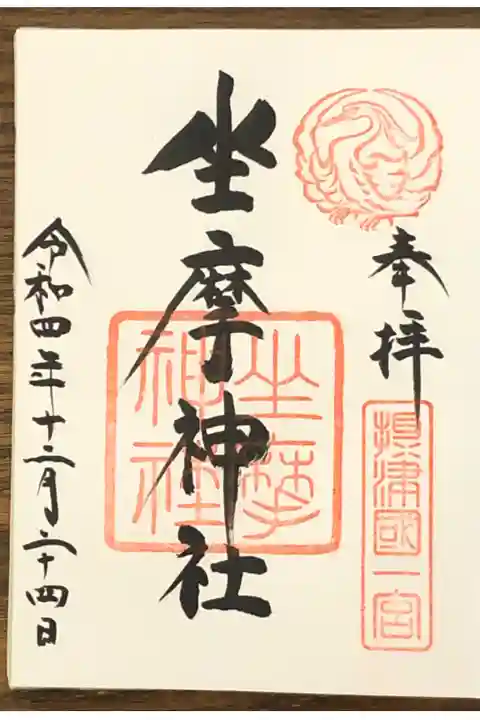 奉拝
摂津國一宮
坐摩神社
坐摩神社
令和四年十二月二十四日